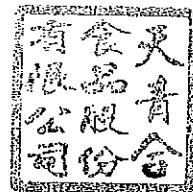 天青
食品股份
有限公司